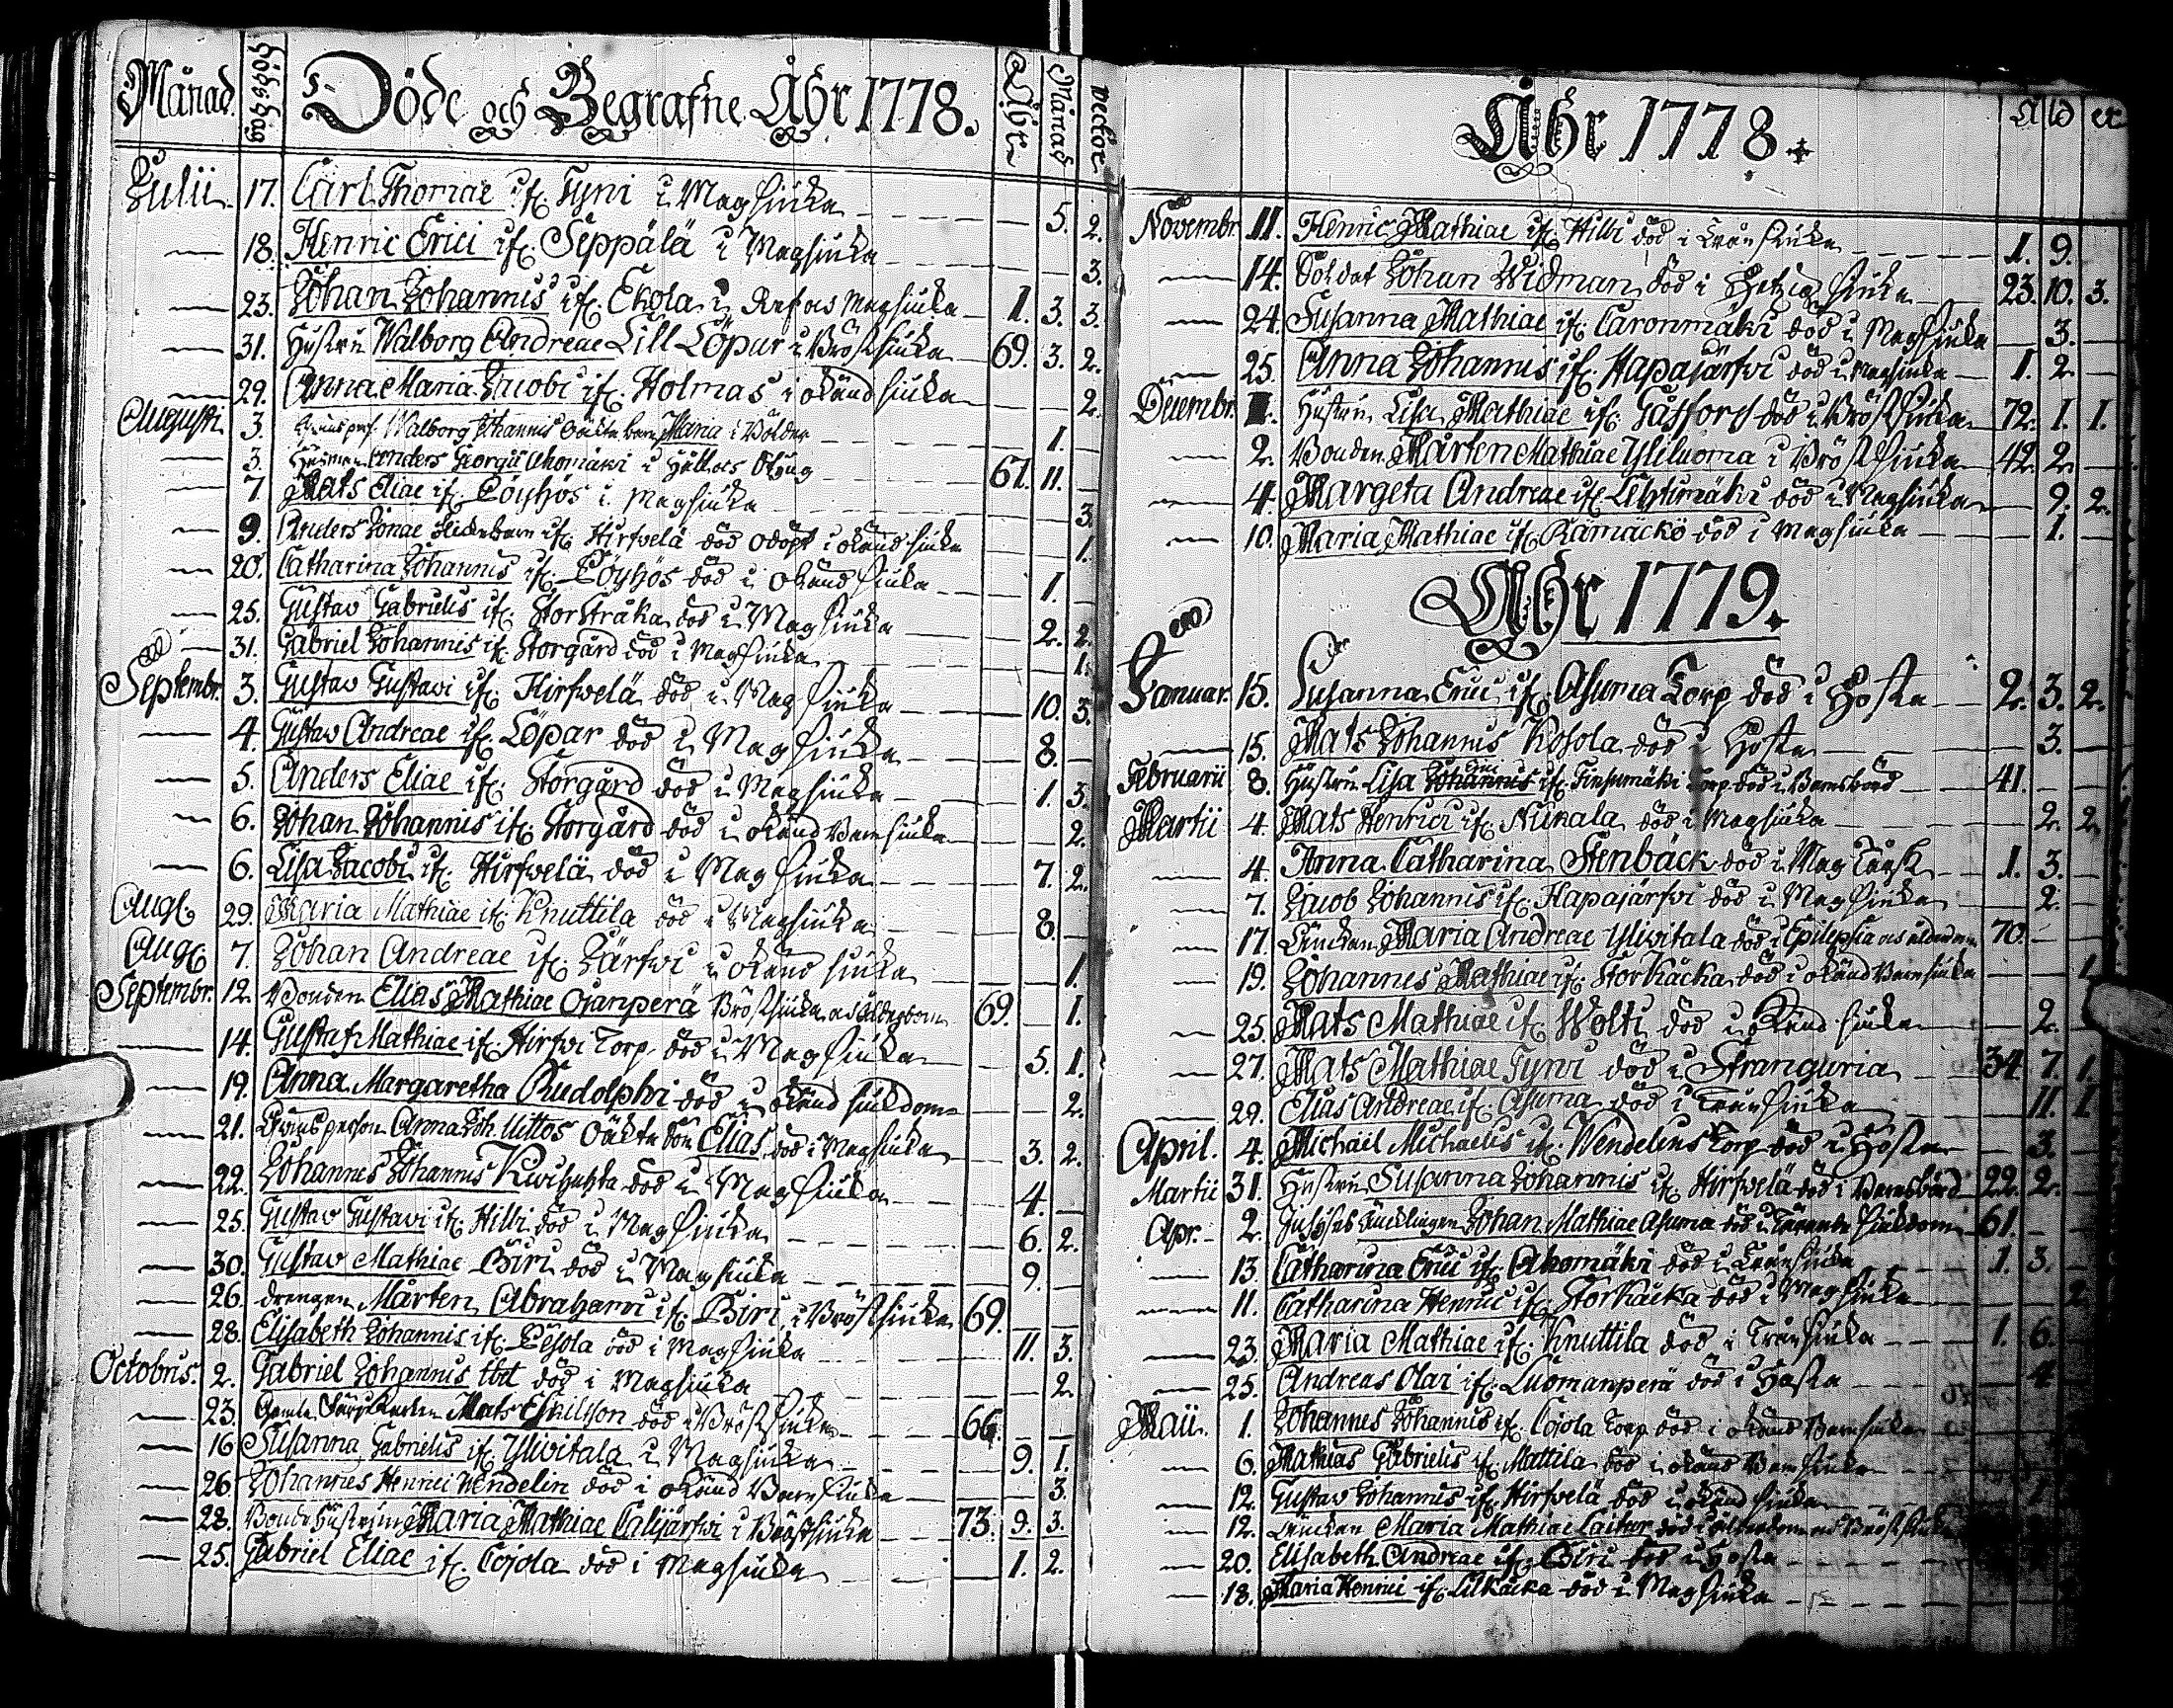 Månad. Döds dag Döde och Begrafne Åhr 1778. Åhr Månad Veckor
Julii. 17. Carl Thomae if. Tyni i Magsiuka 5. 2.
18. Henric Erici if. Seppälä i Magsiuka 3.
23. Johan Johannis if. Ekola i Magsiuka 1. 3. 3.
31. Hustru Walborg Andreae Lill Löpar i Bröstsiuka 69. 3. 2.
29. Anna Maria Jacobi if. Holmas i okänd siuka 2.
Augusti 3. Walborg Johannis Oäkta barn Maria i Bolder 1.
3. Anders Georgii Ahomäki i Håll och Styng 61. 11.
7. Mats Eliae if. Pöyhös i Magsiuka 3.
9. Anders Jonae if. Hirfvelä död odöpt i okänd siuka 1.
20. Catharina Johannis if. Pöyhös död i okänd siuka 1.
25. Gustav Gabrielis if. Storstråka död i Magsiuka 2. 2.
31. Gabriel Johannis if. Storgård död i Magsiuka 1.
Septembr. 3. Gustav Gustavi if. Hirfwelä död i Magsiuka 10. 3.
4. Gustav Andreae if. Löpar död i Magsiuka 8.
5. Anders Eliae if. Storgård död i Magsiuka 1. 3.
6. Johan Johannis if. Storgård död i okänd Barnsiuka 2.
6. Lisa Jacobi if. Hirfvelä död i Magsiuka 7. 2.
Aug. 29. Maria Mathiae if. Knuttila död i Magsiuka 8.
Aug. 7. Johan Andreae if. Järfwi i okänd siuka 1.
Septembr. 12. Bonden Elias Mathiae Ojanperä Bröstsiuka 69. 1.
14. Gustaf Mathiae if. Hirfwi Torp död i Magsiuka 5. 1.
19. Anna Margaretha Rudolphi död i okänd siukdom 2.
21. Anna Joh. Uittos Oäkta Son Elias död i Magsiuka 3. 2.
22. Johannes Johannis Kivihuhta död i Magsiuka 4.
25. Gustav Gustavi if. Hilli död i Magsiuka 6. 2.
30. Gustav Mathiae Biri död i Magsiuka 9.
26. drengen Mårten Abrahami if. Biri i Bröstsiuka 69.
28. Elisabeth Johannis if. Pesola död i Magsiuka 11. 3.
Octobris. 2. Gabriel Johannis död i Magsiuka 2.
23. Gamle Mats Eskilsson död i Bröstsiuka 66.
16 Susanna Gabrielis if. Ylivitala i Magsiuka 9. 1.
26 Johannes Henrici Wendelin död i okänd Barnsiuka 3.
28. Bonde Hustrun Maria Mathiae Calijärfwi i Bröstsiuka 73. 9. 3.
25. Gabriel Eliae if. Cojola död i Magsiuka 1. 2.
Åhr 1778. Ålder
Novembr. 11. Henric Mathiae if. Hilli död i Tvinsiuka 1. 9.
14. Soldat Johan Widman död i Hetsig siuka 23. 10. 3.
24. Susanna Mathiae if. Caronmäki död i Magsiuka 3.
25. Anna Johannis if. Hapajärfvi död i Magsiuka 1. 2.
Decembr. 1. Hustrun Lisa Mathiae if. Gåsfors död i Bröstsiuka 72. 1. 1.
2. Bonden Mårten Mathiae Yliluoma i Bröstsiuka 42. 2.
4. Margeta Andreae if. Lehtimäki död i Magsiuka 9. 2.
10. Maria Mathiae if. Rämäckö död i Magsiuka 1.
Åhr 1779.
Januar. 15. Susanna Erici if. Asuma Torp död i Hosta 2. 3. 2.
15. Mats Johannis Kosola död i Hosta 3.
Februarii 8. Hustru Lisa Erici Johannis if. Torp död i Barnsbörd 41.
Martii 4. Mats Henrici if. Niinala död i Magsiuka 2. 2
4. Anna Catharina Stenbäck död i Mag 1. 3.
7. Jacob Johannis if. Hapajärfvi död i Magsiuka 2.
17. Enckan Maria Andreae Ylivitala död i Epilepsia 70.
19. Johannes Mathiae if. Storkäcka död i okänd Barnsiuka 1
25. Mats Mathiae if. Wolti död i okänd siuka 2.
27. Mats Mathiae Tyni död i Stranguria 34 7. 1.
29. Elias Andreae if. Asuma död i Tvinsiuka 11. 1
April. 4. Michail Michaelis if. Wendelins Torp död i Hosta 3.
Martii 31. Hustru Susanna Johannis if. Hirfvelä död i Barnsbörd 22. 2.
Apr. 2. Johan Mathiae Asuma död i Tärande siukdom 61.
13. Catharina Erici if. Ahomäki död i Tvinsiuka 1. 3.
11. Catharina Henrici if. Storkäcka död i Magsiuka 2
23. Maria Mathiae if. Knuttila död i Tvinsiuka 1. 6.
25. Andreas Olai if. Luomanperä död i Hosta 4
Maii. 1. Johannes Johannis if. Cojola Torp död i okänd Barnsiuka
6. Mathias Gabrielis if. Mattila död i okänd Barnsiuka
12. Gustav Johannis if. Hirfvelä död i okänd siuka 1
12. Enckan Maria Mathiae död i ålderdom
20. Elisabeth Andreae if. Biri död i Hosta
18. Maria Henrici if. Lilkäcka död i Magsiuka